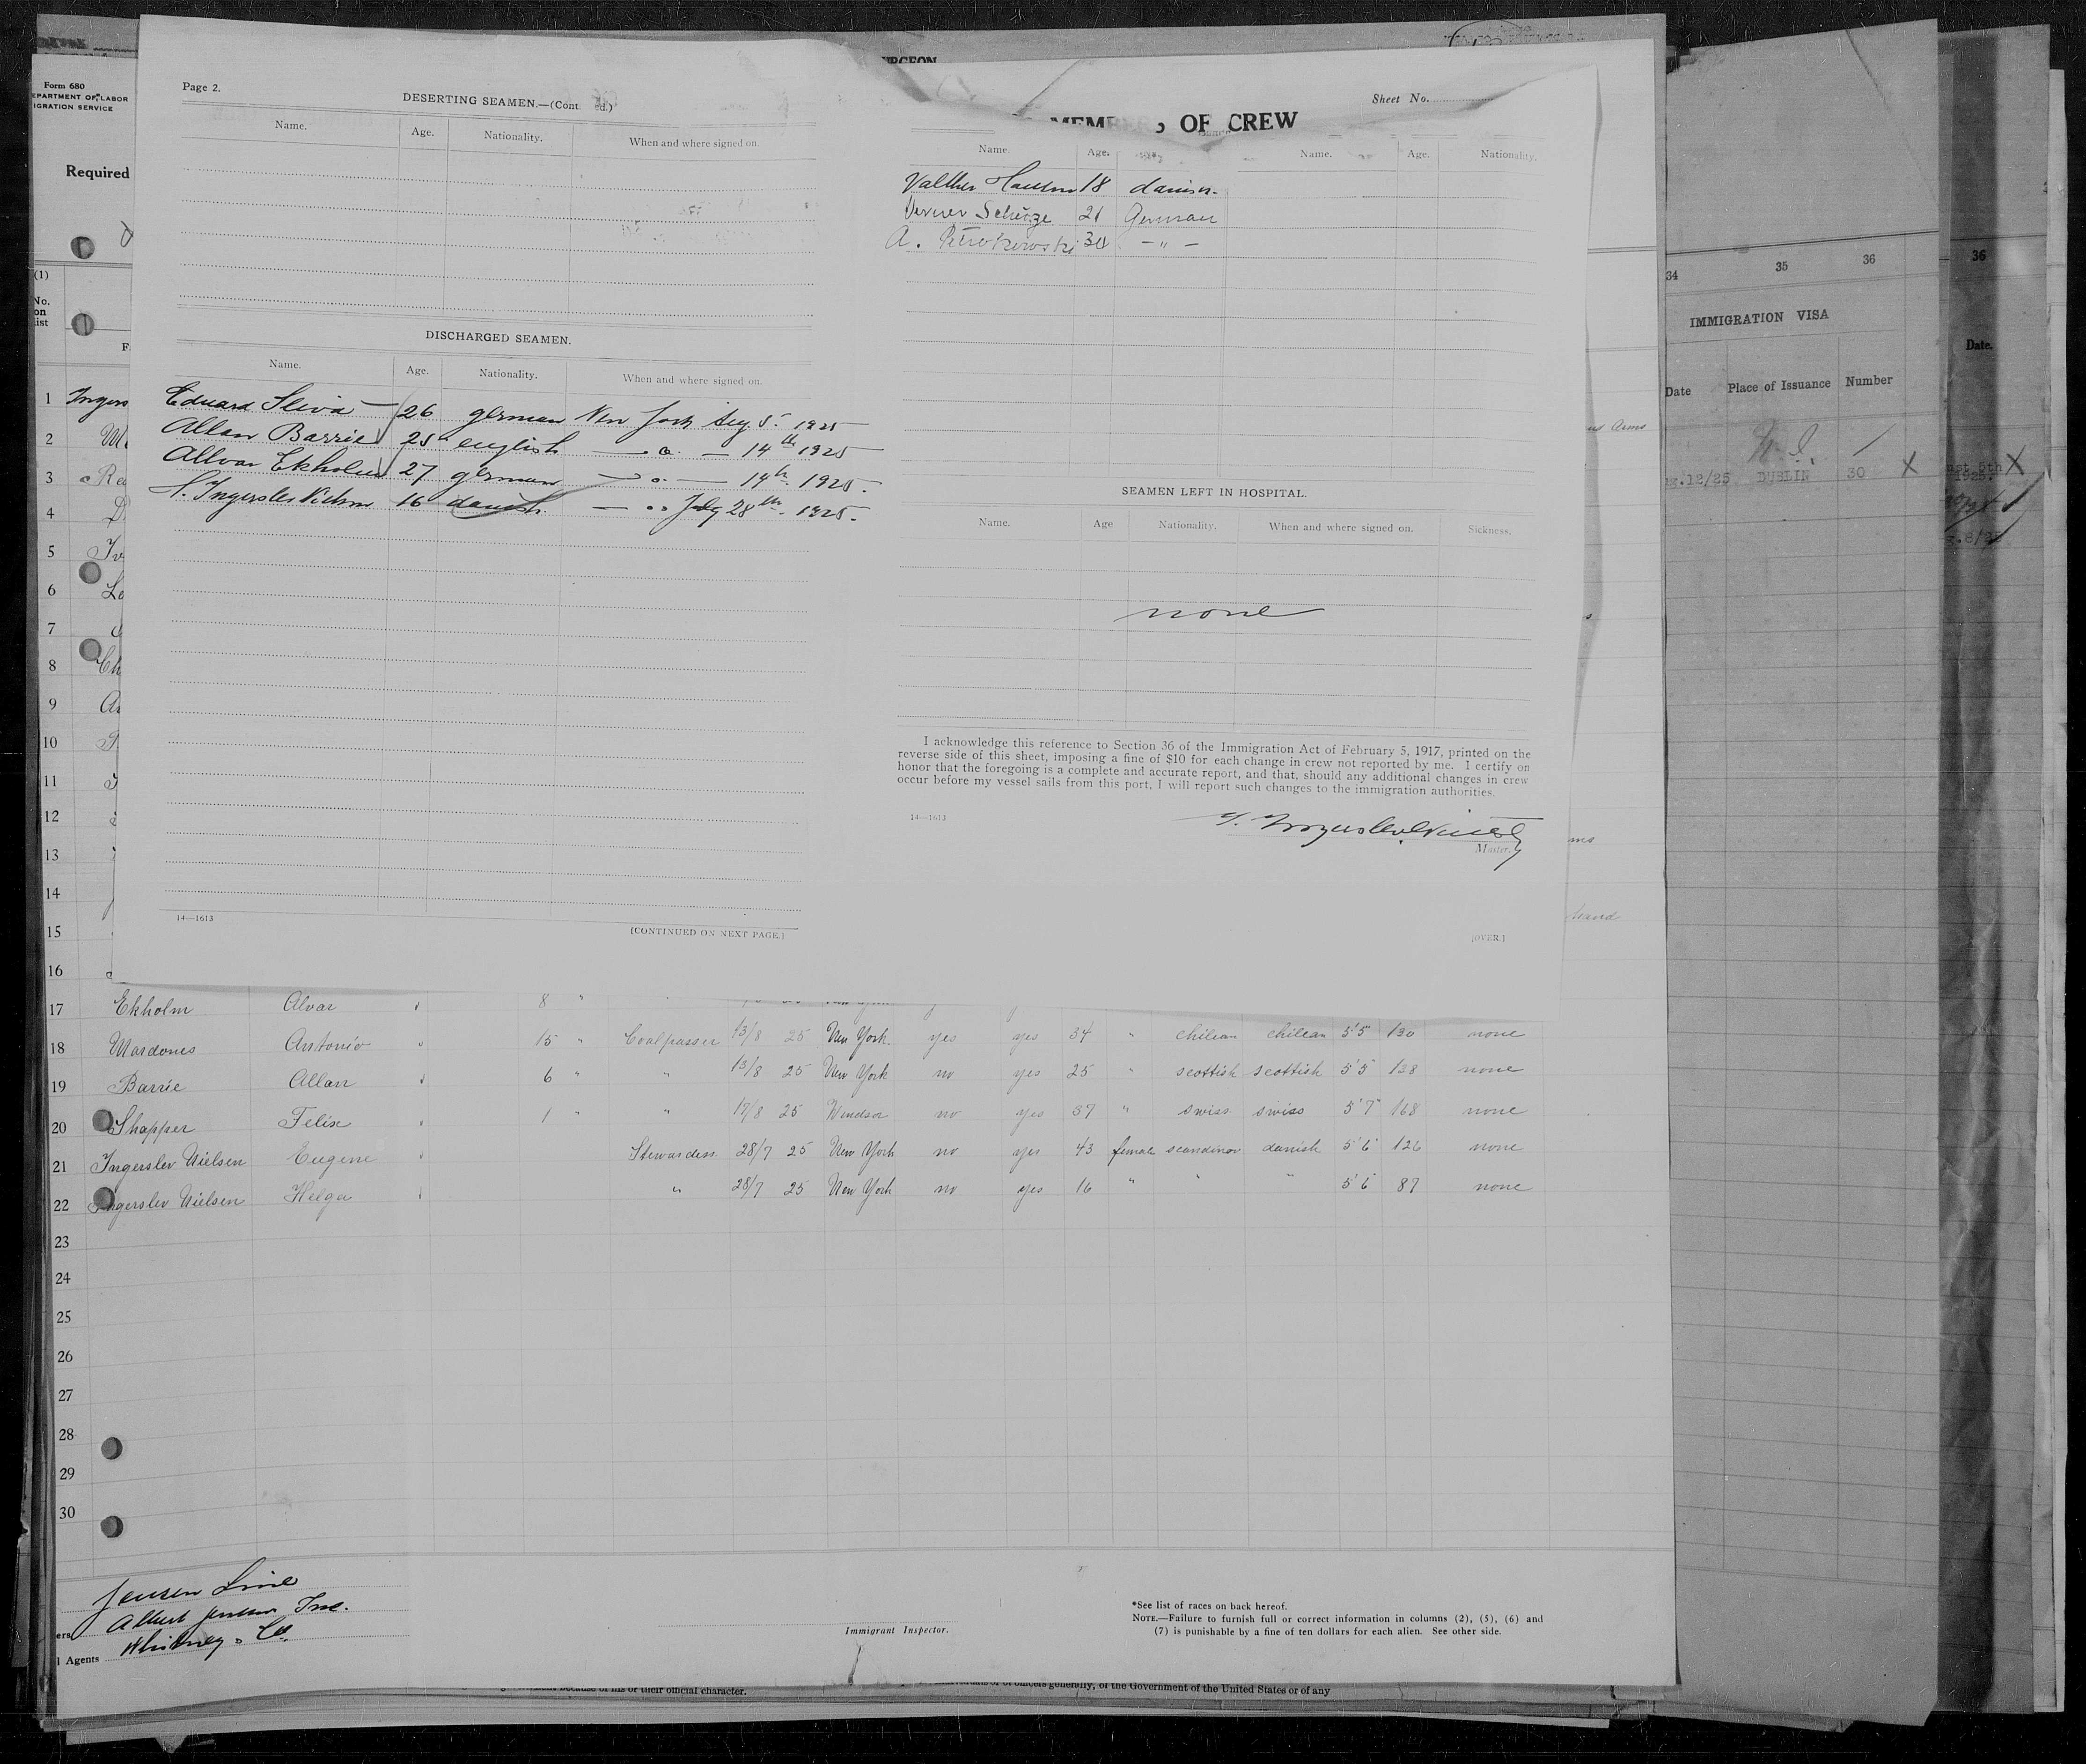 Form 680
EPARTMENT OF LABOR
IGRATION SERVICE
Required
(1)
No.
on
list
Page 2.
DESERTING SEAMEN.—(Cont ed.)
Name. Age. Nationality. When and where signed on.
DISCHARGED SEAMEN.
Name. Age. Nationality. When and where signed on.
Eduard Sliva 26 german New York Aug 5. 1925
Allan Barrie 25 english — o. — 14th 1925
Allvar Ekholm 27 german — o. — 14th 1925.
16 danish. July 28th 1925.
14—1613
[CONTINUED ON NEXT PAGE.]
RGEON
Sheet No.
MEMBERS OF CREW
Name. Age. Name. Age. Nationality.
Valther Hansen 18 danish.
Verner Schütze 21 German
A. 34 — " —
SEAMEN LEFT IN HOSPITAL.
Name. Age Nationality. When and where signed on. Sickness.
none
I acknowledge this reference to Section 36 of the Immigration Act of February 5, 1917, printed on the
reverse side of this sheet, imposing a fine of $10 for each change in crew not reported by me. I certify on
honor that the foregoing is a complete and accurate report, and that, should any additional changes in crew
occur before my vessel sails from this port, I will report such changes to the immigration authorities.
14—1613
Master.
[OVER.]
34 35 36
IMMIGRATION VISA
Date Place of Issuance Number
g.12/25 DUBLIN 30 X
36
Date.
ust 5th X
1925.
g.8/25
1 Ingers
2
3
4
5
6
7
8 Ch
9
10
11
12
13
14
15
16
17 Ekholm Alvar 8 "
18 Mardones Antonio 15 " Coalpasser 13/8 25 New York yes yes 34 " chilean chilean 5'5 130 none
19 Barrie Allan 6 " " 13/8 25 New York no yes 25 " scottish scottish 5'5 138 none
20 Shapper Felix 1 " " 17/8 25 Windsor no yes 37 " swiss swiss 5'7 168 none
21 Ingerslev Nielsen Eugine Stewardess 28/7 25 New York no yes 43 female scandinav danish 5'6 126 none
22 Ingerslev Nielsen Helga " 28/7 25 New York no yes 16 " " " 5'6 87 none
23
24
25
26
27
28
29
30
Jensen Line
ers Albert Jensen Inc.
l Agents Whitney & Co.
Immigrant Inspector.
*See list of races on back hereof.
NOTE.—Failure to furnish full or correct information in columns (2), (5), (6) and
(7) is punishable by a fine of ten dollars for each alien. See other side.
because of his or their official character.
of officers generally, of the Government of the United States or of any